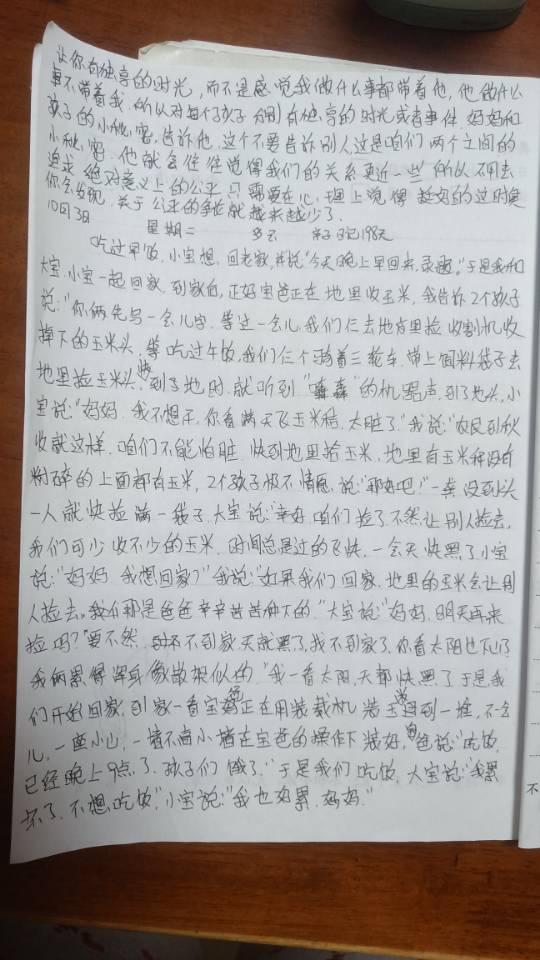 让你有独享的时光,而不是感觉我做什么事都带着他,他做什么
事不带着我,所以对每个孩子分别有独享的时光或者事件,妈妈和
孩子的小秘密,告诉他,这个不要告诉别人这是咱们两个之间的
小秘密,他就会往往觉得我们的关系更近一些,所以不用去
追求绝对意义上的公平,只需要在心理上觉得
你会发现,关于公平的争抢就越来越少了.
10月3日 星期二 多云 亲子日记198天
吃过早饭,小宝想,回老家,并说“今天晚上早回来,录画。”于是我和
大宝,小宝一起回家,到家后,正好宝爸正在地里收玉米,我告诉2个孩子
说:“你俩先写一会儿字,等过一会儿,我们仨去地里捡收割机收
掉下的玉米头,等吃过午饭,我们仨个骑着三轮车,带上饲料袋子去
地里捡玉米头,快到了地时,就听到“”的机器声,到了地头,小
宝说:“妈妈,我不想干,你看满天飞玉米秸,太脏了”我说:“农民到秋
收就这样,咱们不能怕脏,快到地里拾玉米,地里有玉米秸没有
粉碎的上面都有玉米,2个孩子极不情愿,说:“那好吧!”一垄没到头
一人就快捡满一袋子,大宝说:“幸好咱们捡了,不然让别人捡去,
我们可少收不少的玉米,时间总是过的飞快,一会天快黑了小宝
说:“妈妈,我想回家?”我说:“如果我们回家,地里的玉米会让别
人捡去,我们那是爸爸辛辛苦苦种下的,“大宝说:“妈妈,明天再来
捡吗?”要不然,不到家,天就黑了,找不到家了,你看太阳也下山了
我俩累得浑身像散架似的,”我一看太阳,天都快黑了,于是我
们开始回家,到家一看宝爸正在用装载机装玉米到一堆,不一会
儿,一座小山,一堵不高小墙在宝爸的操作下装好,宝爸说:“吃饭,
已经晚上9点了,孩子们饿了,“于是我们吃饭,大宝说:“我累
坏了,不想吃饭,”小宝说:“我也好累,妈妈.”